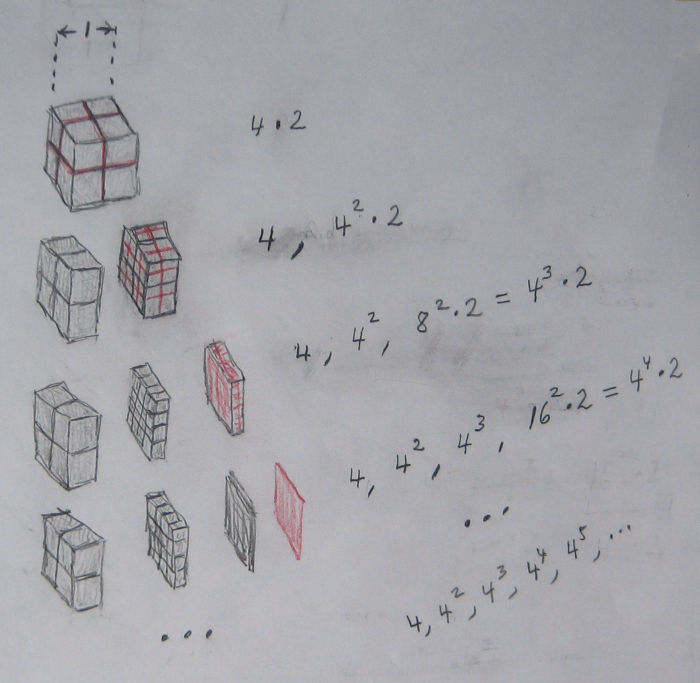 1
4 · 2
4, 4² · 2
4, 4², 8² · 2 = 4³ · 2
4, 4², 4³, 16² · 2 = 4⁴ · 2
...
4, 4², 4³, 4⁴, 4⁵, ...
...